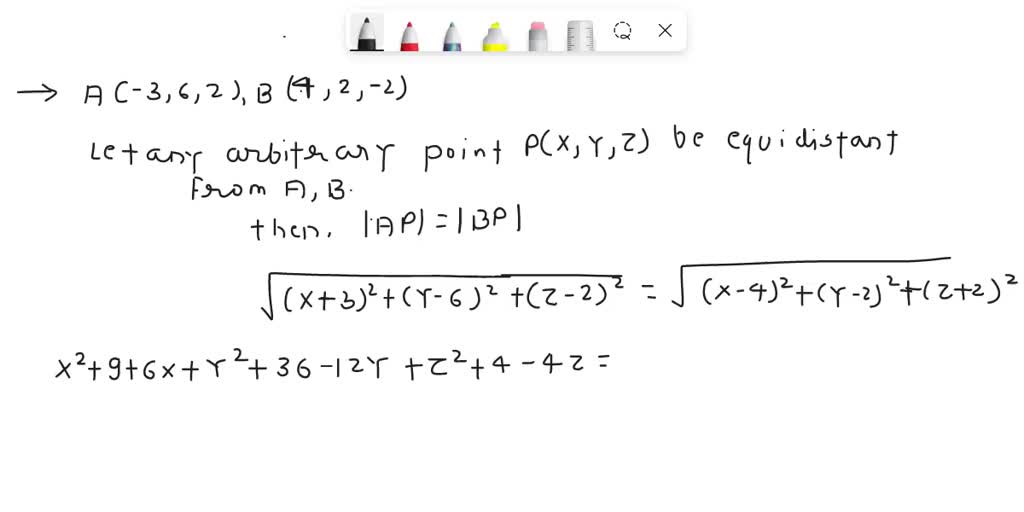 → A(-3,6,2), B(4,2,-2)
Let any arbiterary point P(X,Y,Z) be equidistant
from A,B.
then, |AP|=|BP|
√(X+3)²+(Y-6)²+(Z-2)² = √(X-4)²+(Y-2)²+(Z+2)²
X²+9+6X+Y²+36-12Y+Z²+4-4Z=